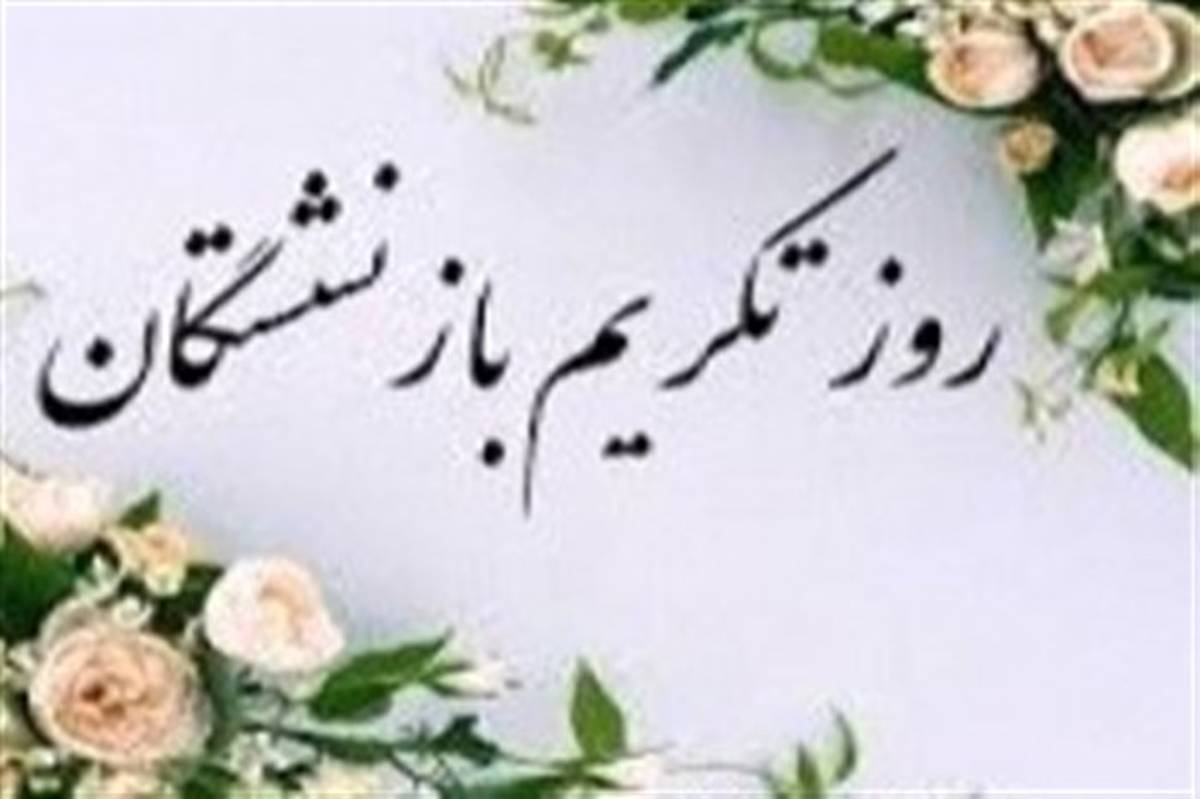 روز تکریم بازنشستگان